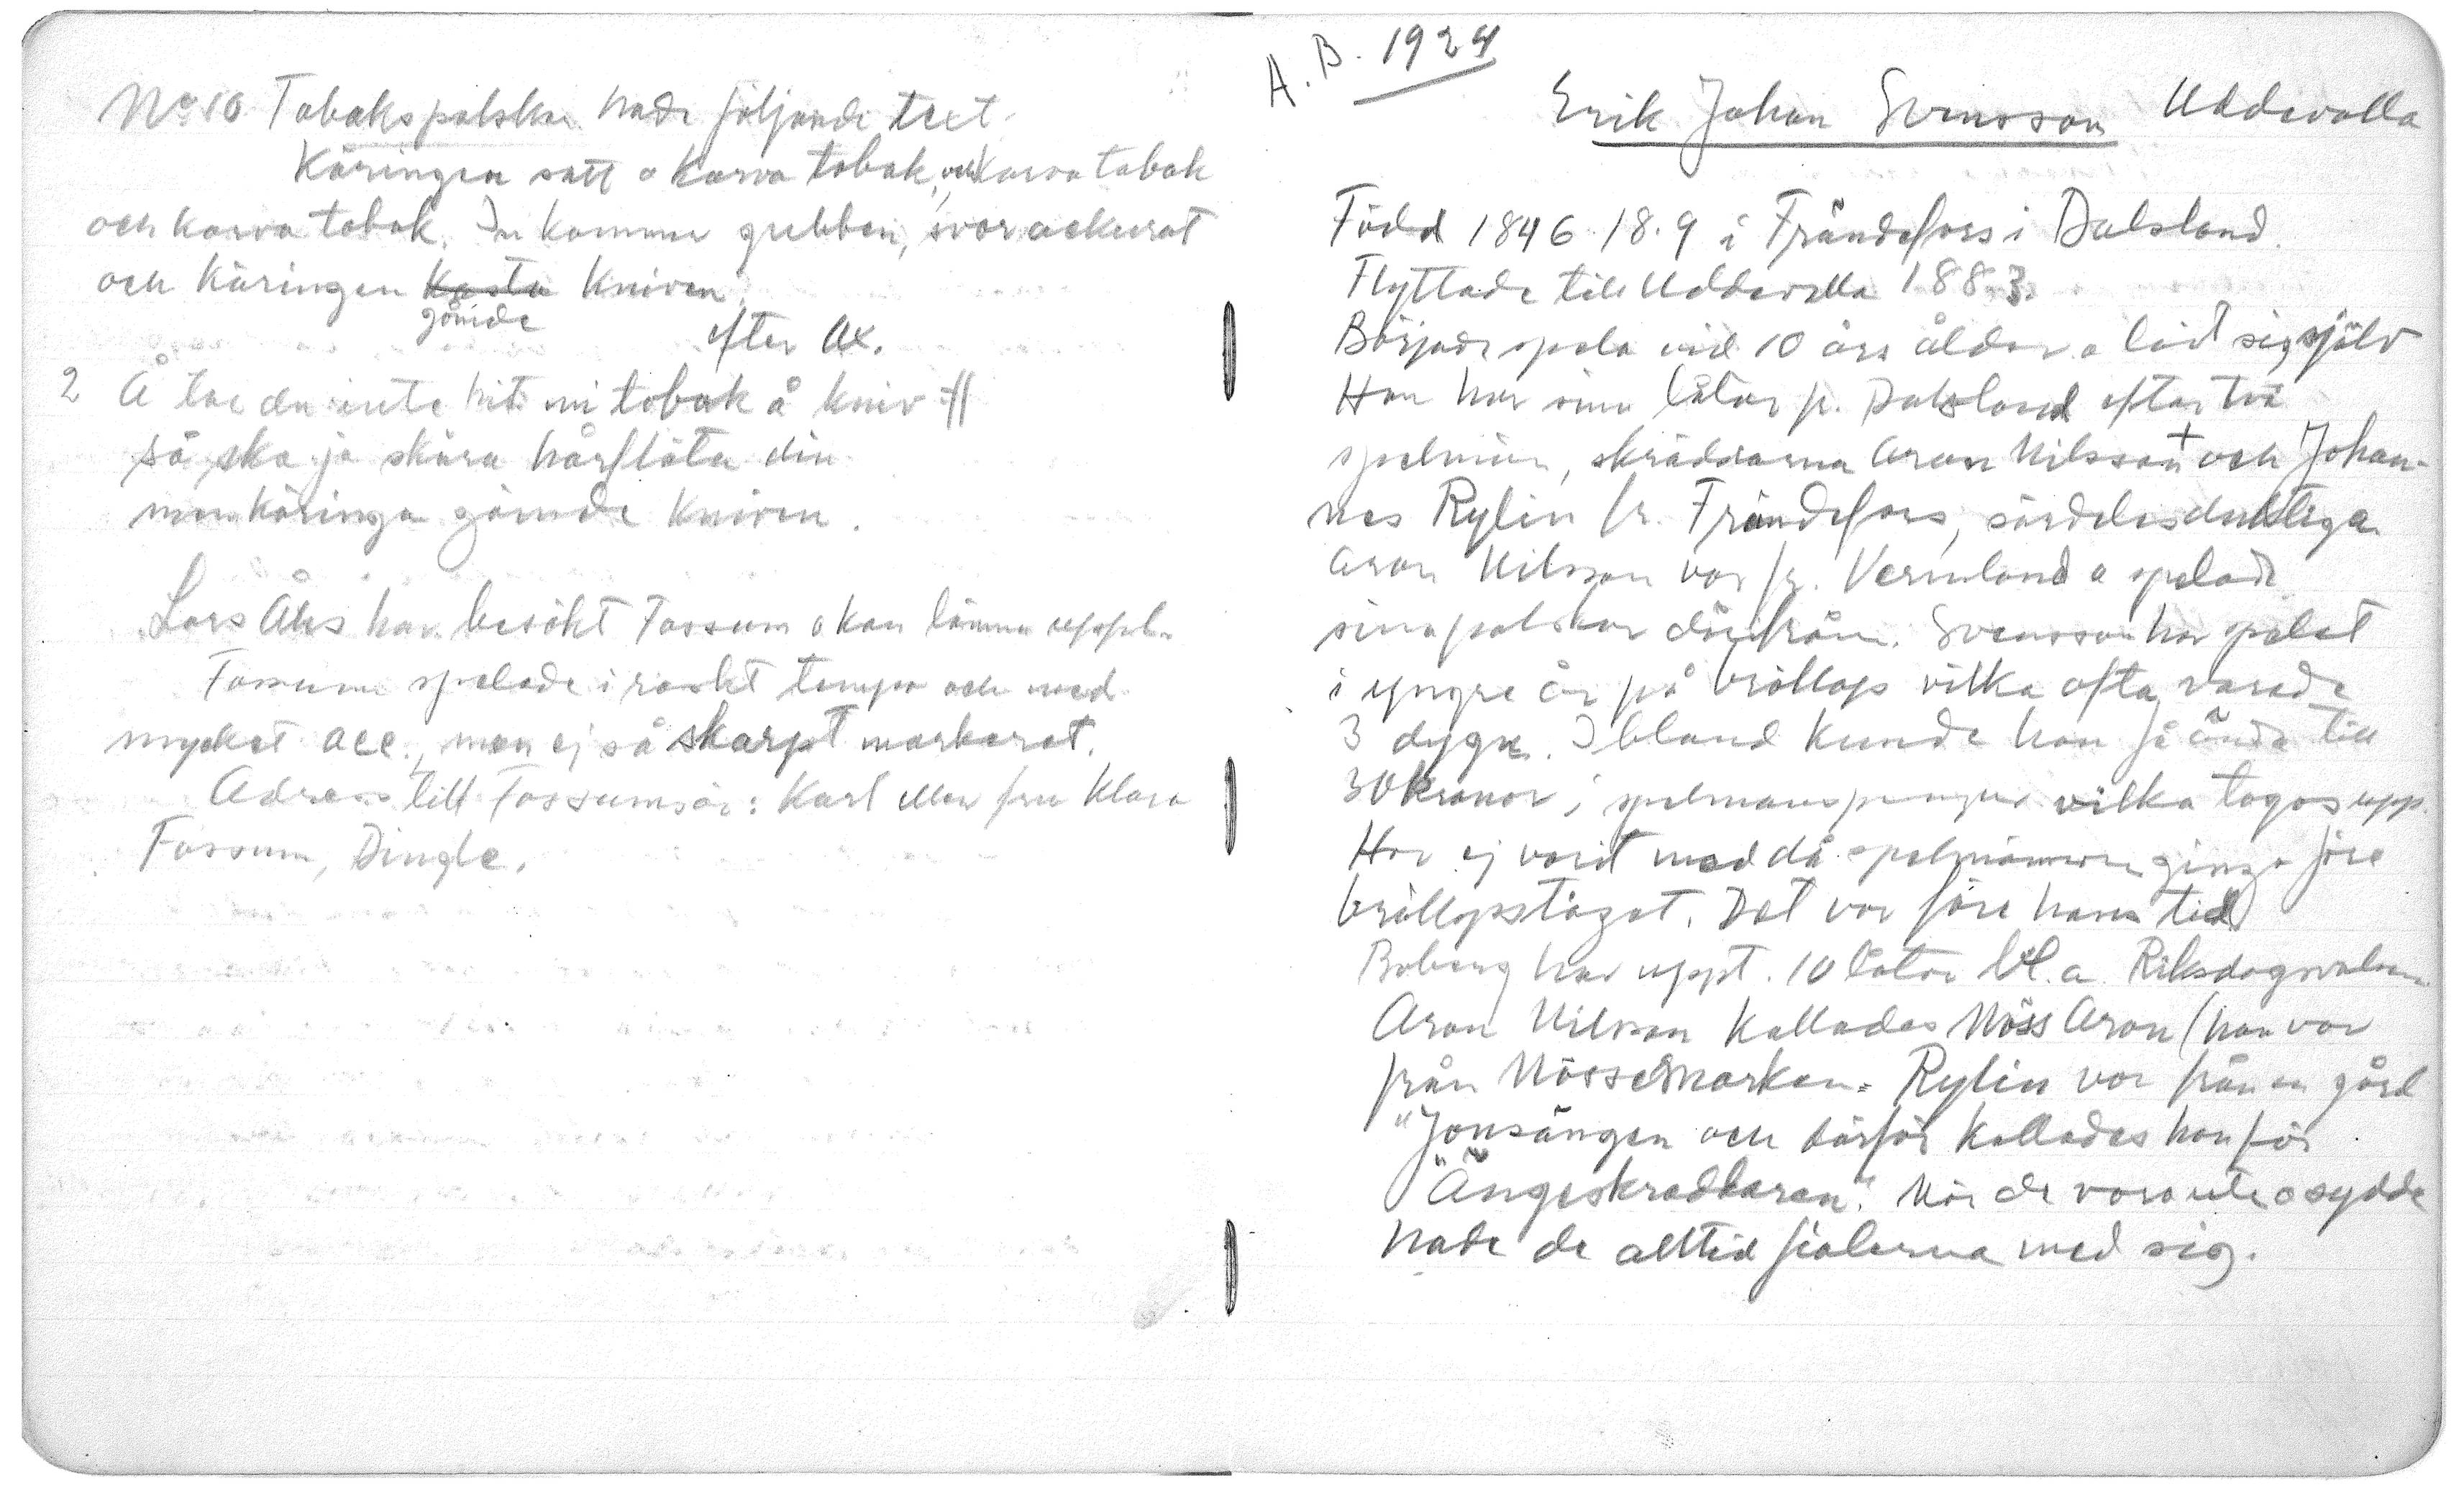 No 10 Tabakspolska hade följande text.
Käringen satt o karva tobak, och karva tobak
och karva tobak. In kommer gubben, svor ackurat
och käringen kasta kniven.
gömde
efter Ax.
2 Å tar du inte hit mi tobak å kniv :||
så ska ja skära hårflåta din
men käringa gömde kniven.
Lars Åhs har besökt Fossum o kan lämna uppl.
Fossum spelade i raskt tempo och med
mycket acc., men ej så skarpt markerat.
Adress till Fossumsör: Karl eller fru Klara
Fossum, Dingle.
A. B. 1924
Erik Johan Svensson Uddevalla
Född 1846 18.9 i Frändefors i Dalsland.
Flyttade till Uddevalla 1883.
Började spela vid 10 års ålder o lärt sig själv
Han har sina låtar fr. Dalsland efter två
spelmän, skräddarna Aron Nilsson + och Johan-
nes Rylin fr. Frändefors, särdeles duktiga
Aron Nilsson var fr. Vermland o spelade
sina polskor därifrån. Svensson har spelat
i yngre år på bröllop vilka ofta varade
3 dygn. Ibland kunde han få ända till
30 kronor i spelmanspengar vilka togos upp.
Har ej varit med då spelmännen gingo före
bröllopståget. Det var före hans tid
Boberg har uppt. 10 låtar bl. a. Riksdagsvalsen
Aron Nilsson kallades Nöss Aron (han var
från Nössemarken. Rylin var från en gård
"Jonsängen och därför kallades han för
"Ängeskraddaren". När de voro ute o sydde
hade de alltid fiolerna med sig.